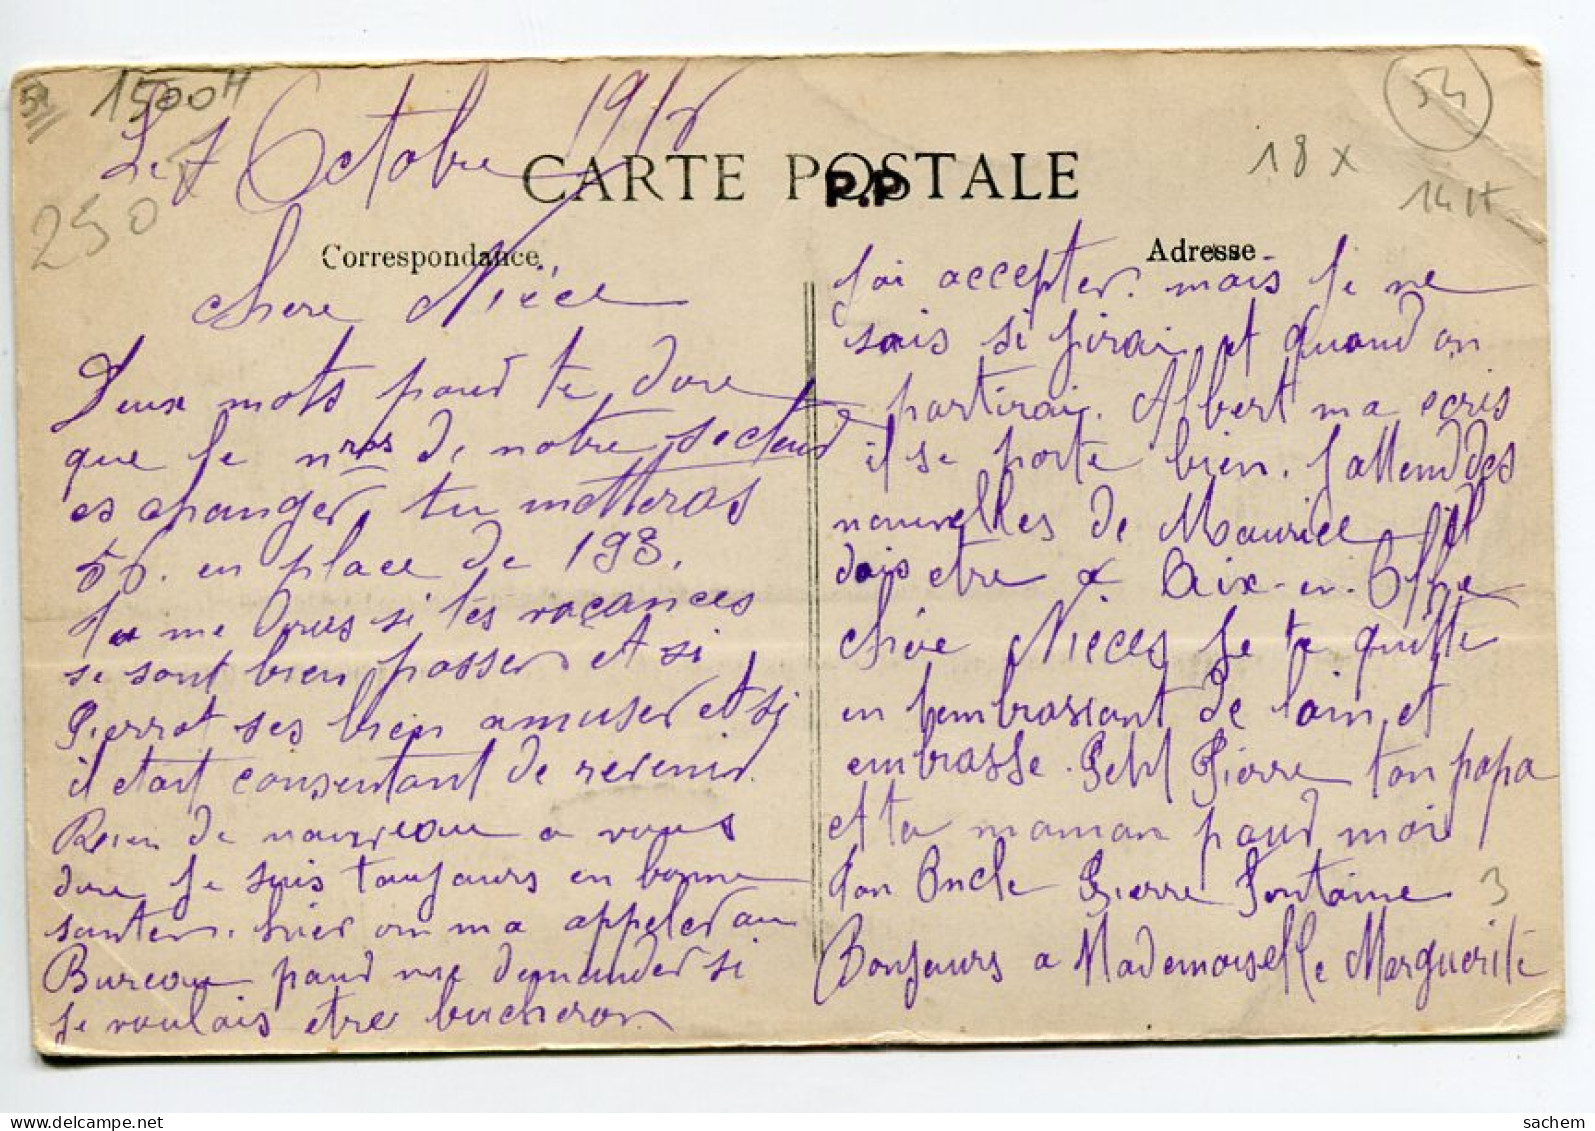 51
1500H
250F
Le 7 Octobre 1915
CARTE POSTALE
P.P
18 x
54
14 H
Correspondance
Adresse
chere Niéce
Deux mots pourd te dire
que le nros de notre secteurd
es changer, tu metteras
56. en place de 193.
tu me diras si tes vacances
se sont bien passer et si
Pierrot ses bien amuser et si
il etait consentant de revenir.
Rien de nouveau a vous
dire je suis toujours en bonne
santer. hier on m a appeler au
Bureau pourd me demander si
je voulais etre bucheron
jai accepter. mais je ne
sais si jirai et quand on
partirai. Albert ma ecris
il se porte bien. jattend des
nouvelles de Maurice il
dois etre a Aix-en-Othe
chére Nieces je te quitte
en t'embrassant de loin et
embrasse Petit Pierre ton papa
et ta maman pourd moi
Ton Oncle Pierre Fontaine
3
Bonjours a Mademoiselle Marguerite
www.delcampe.net
sachem